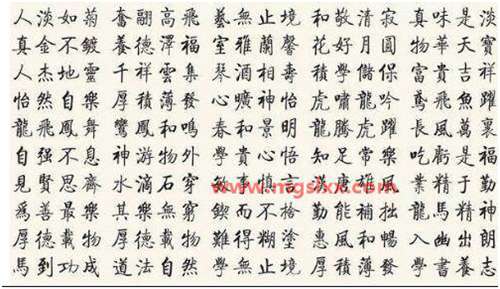 人淡如菊奮翮高飛藝無止境和敬清寂真味是淡
真金不鍍養德澤福室雅蘭馨花好月圓物華天寶
人杰地靈千祥雲集琴酒相壽積學儲保富貴吉祥
怡然自樂厚積薄發心曠神怡虎嘯龍吟鳶飛魚躍
龍飛鳳舞鸞鳳和鳴春和景明龍騰虎躍長風萬裏
自强不息神游物外學貴心悟知足常樂吃虧是福
見賢思齊水滴石穿事慎言雄風業精于勤
爲善最樂其樂無窮鍥而不捨勤能補拙龍馬精神
厚德載物厚德載物難得糊塗惠風和暢入幽出朗
馬到功成道法自然學無止境厚積薄發學書養志
www.mgslxx.com